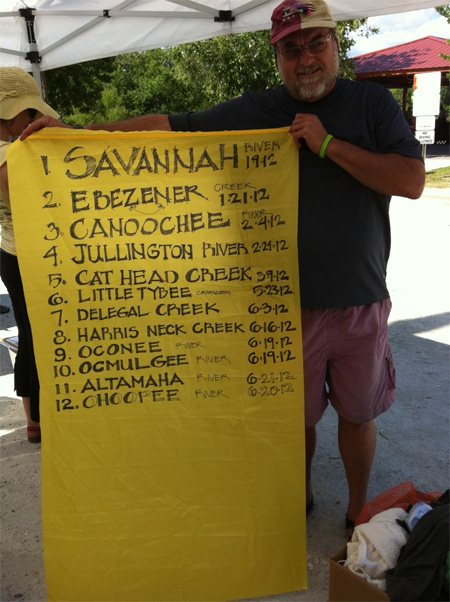 1. SAVANNAH RIVER 1·9·12
2. EBEZENER CREEK 1·21·12
3. CANOOCHEE RIVER 2·4·12
4. JULLINGTON RIVER 2·29·12
5. CAT HEAD CREEK 3·9·12
6. LITTLE TYBEE 5·23·12
7. DELEGAL CREEK 6·3·12
8. HARRIS NECK CREEK 6·16·12
9. OCONEE RIVER 6·19·12
10. OCMULGEE RIVER 6·19·12
11. ALTAMAHA RIVER 6·21·12
12. OHOOPEE RIVER 6·23·12
NO
DIVING